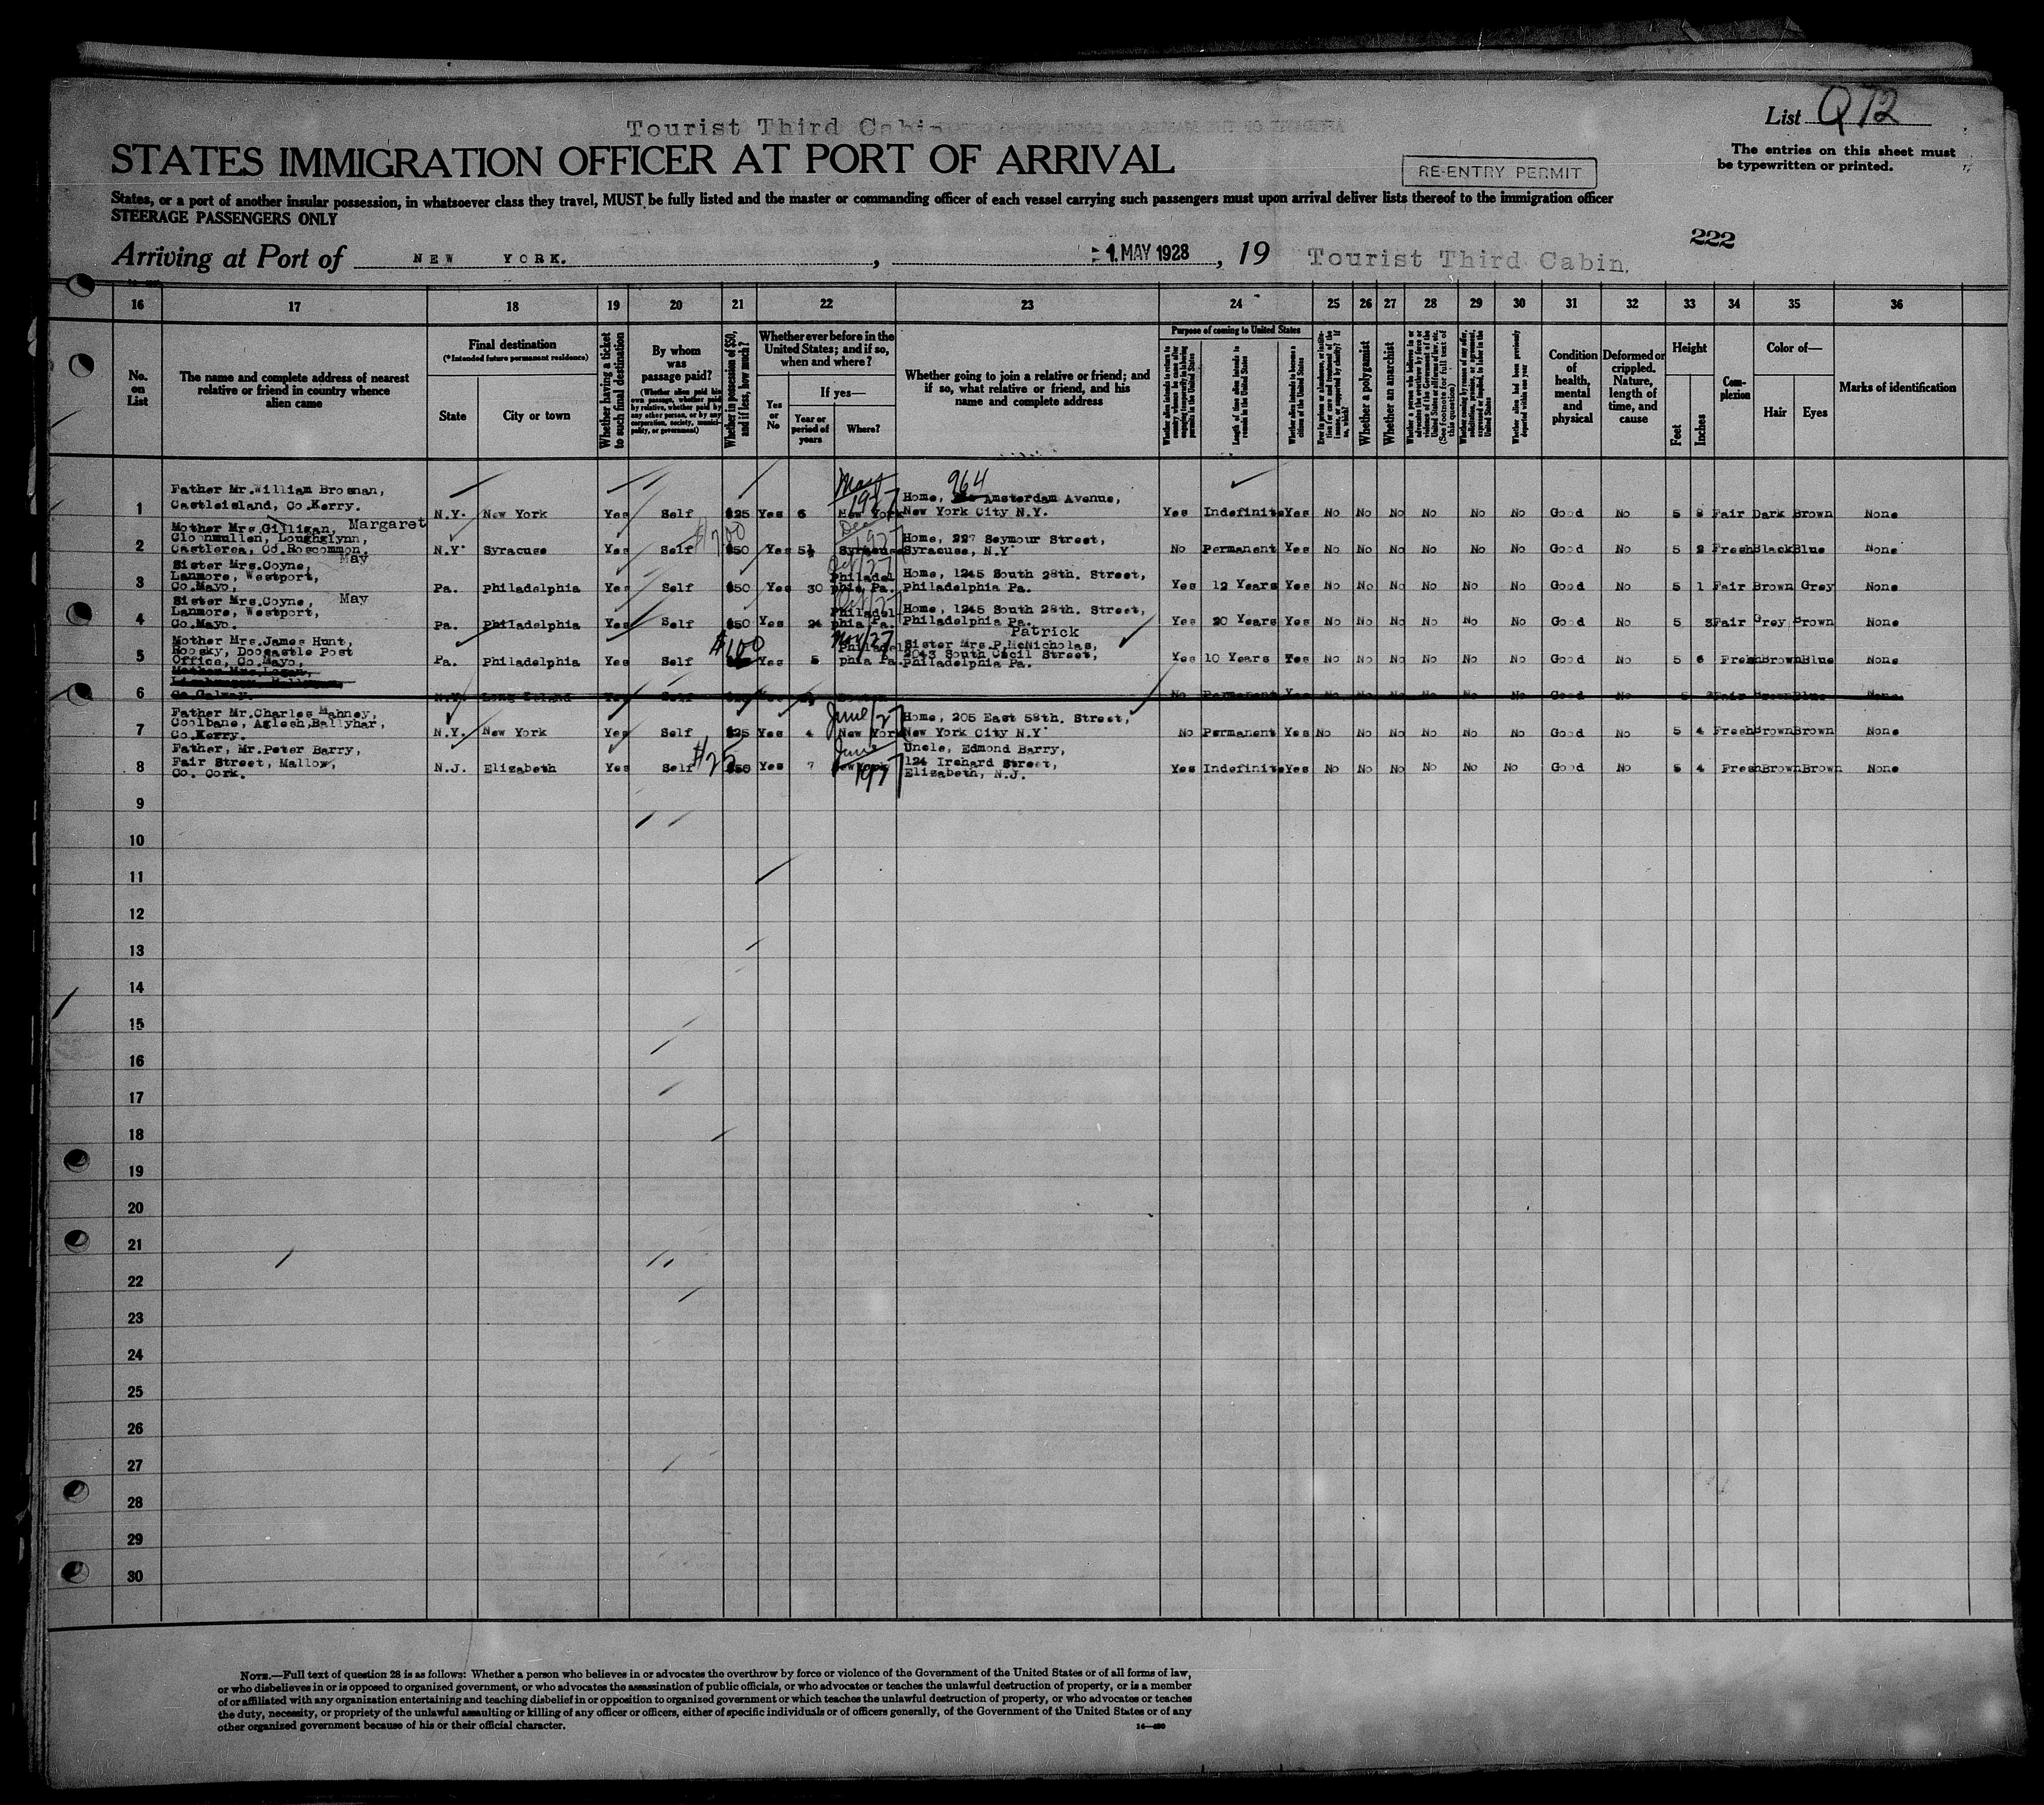 Tourist Third Cabin
List Q 72
STATES IMMIGRATION OFFICER AT PORT OF ARRIVAL
The entries on this sheet must
be typewritten or printed.
RE-ENTRY PERMIT
States, or a port of another insular possession, in whatsoever class they travel, MUST be fully listed and the master or commanding officer of each vessel carrying such passengers must upon arrival deliver lists thereof to the immigration officer
STEERAGE PASSENGERS ONLY
222
Arriving at Port of NEW YORK. , 1 MAY 1928 , 19 Tourist Third Cabin.
16 17 18 19 20 21 22 23 24 25 26 27 28 29 30 31 32 33 34 35 36
No. on List
The name and complete address of nearest relative or friend in country whence alien came
Final destination
(*Intended future permanent residence)
State
City or town
Whether having a ticket to such final destination
By whom was passage paid?
(Whether alien paid his own passage, whether paid by relative, whether paid by any other person, or by any corporation, society, municipality, or government)
Whether in possession of $50, and if less, how much?
Whether ever before in the United States; and if so, when and where?
Yes or No
If yes—
Year or period of years
Where?
Whether going to join a relative or friend; and if so, what relative or friend, and his name and complete address
Purpose of coming to United States
Length of time alien intends to remain in the United States
Whether alien intends to become a citizen of the United States
Whether a polygamist
Whether an anarchist
Condition of health, mental and physical
Deformed or crippled. Nature, length of time, and cause
Height
Feet
Inches
Complexion
Color of—
Hair
Eyes
Marks of identification
1 Father Mr.William Brosnan, Castleisland, Co.Kerry. N.Y. New York Yes Self $25 Yes 6 May 1927 New York Home, 964 Amsterdam Avenue, New York City N.Y. Yes Indefinite Yes No No No No No No Good No 5 8 Fair Dark Brown None
2 Mother Mrs.Gilligan, Margaret Cloonmullen, Loughglynn, Castlerea, Co.Roscommon. N.Y. Syracuse Yes Self $200 $50 Yes 5½ Dec 1927 Syracuse Home, 227 Seymour Street, Syracuse, N.Y. No Permanent Yes No No No No No No Good No 5 2 Fresh Black Blue None
3 Sister Mrs.Coyne, May Lanmore, Westport, Co.Mayo, Pa. Philadelphia Yes Self $50 Yes 30 Oct/27 Philadelphia, Pa. Home, 1245 South 28th. Street, Philadelphia Pa. Yes 12 Years Yes No No No No No No Good No 5 1 Fair Brown Grey None
4 Sister Mrs.Coyne, May Lanmore, Westport, Co.Mayo. Pa. Philadelphia Yes Self $50 Yes 24 Oct/27 Philadelphia Pa. Home, 1245 South 28th. Street, Philadelphia Pa. Yes 20 Years Yes No No No No No No Good No 5 3 Fair Grey Brown None
5 Mother Mrs.James Hunt, Roosky, Doocastle Post Office, Co.Mayo, Pa. Philadelphia Yes Self $100 Yes 5 Nov/27 Philadelphia Pa. Sister Mrs.P.McNicholas, Patrick 2043 South Cecil Street, Philadelphia Pa. Yes 10 Years Yes No No No No No No Good No 5 6 Fresh Brown Blue None
6 Co.Galway. N.Y. Long Island Yes Self No Permanent Yes No No No No No No Good No 5 Fair Brown Blue None
7 Father Mr.Charles Mahney, Coolbane, Aglesh,Ballyhar, Co.Kerry. N.Y. New York Yes Self $25 Yes 4 June/27 New York Home, 205 East 58th. Street, New York City N.Y. No Permanent Yes No No No No No No Good No 5 4 Fresh Brown Brown None
8 Father, Mr.Peter Barry, Fair Street, Mallow, Co. Cork. N.J. Elizabeth Yes Self $25 $50 Yes 7 June 1927 New York Uncle, Edmond Barry, 124 Irehard Street, Elizabeth, N.J. Yes Indefinite Yes No No No No No No Good No 5 4 Fresh Brown Brown None
9
10
11
12
13
14
15
16
17
18
19
20
21
22
23
24
25
26
27
28
29
30
NOTE.—Full text of question 28 is as follows: Whether a person who believes in or advocates the overthrow by force or violence of the Government of the United States or of all forms of law,
or who disbelieves in or is opposed to organized government, or who advocates the assassination of public officials, or who advocates or teaches the unlawful destruction of property, or is a member
of or affiliated with any organization entertaining and teaching disbelief in or opposition to organized government or which teaches the unlawful destruction of property, or who advocates or teaches
the duty, necessity, or propriety of the unlawful assaulting or killing of any officer or officers, either of specific individuals or of officers generally, of the Government of the United States or of any
other organized government because of his or their official character.
14—490